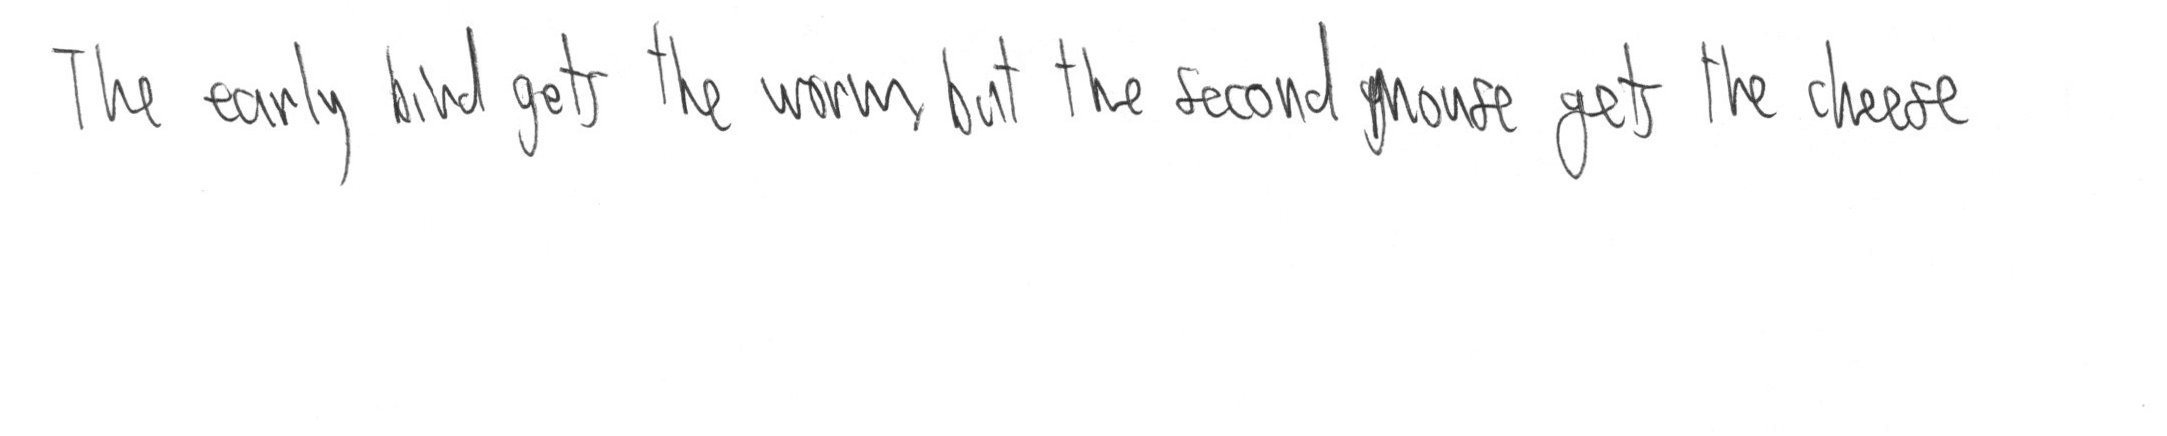 The early bird gets the worm, but the second mouse gets the cheese